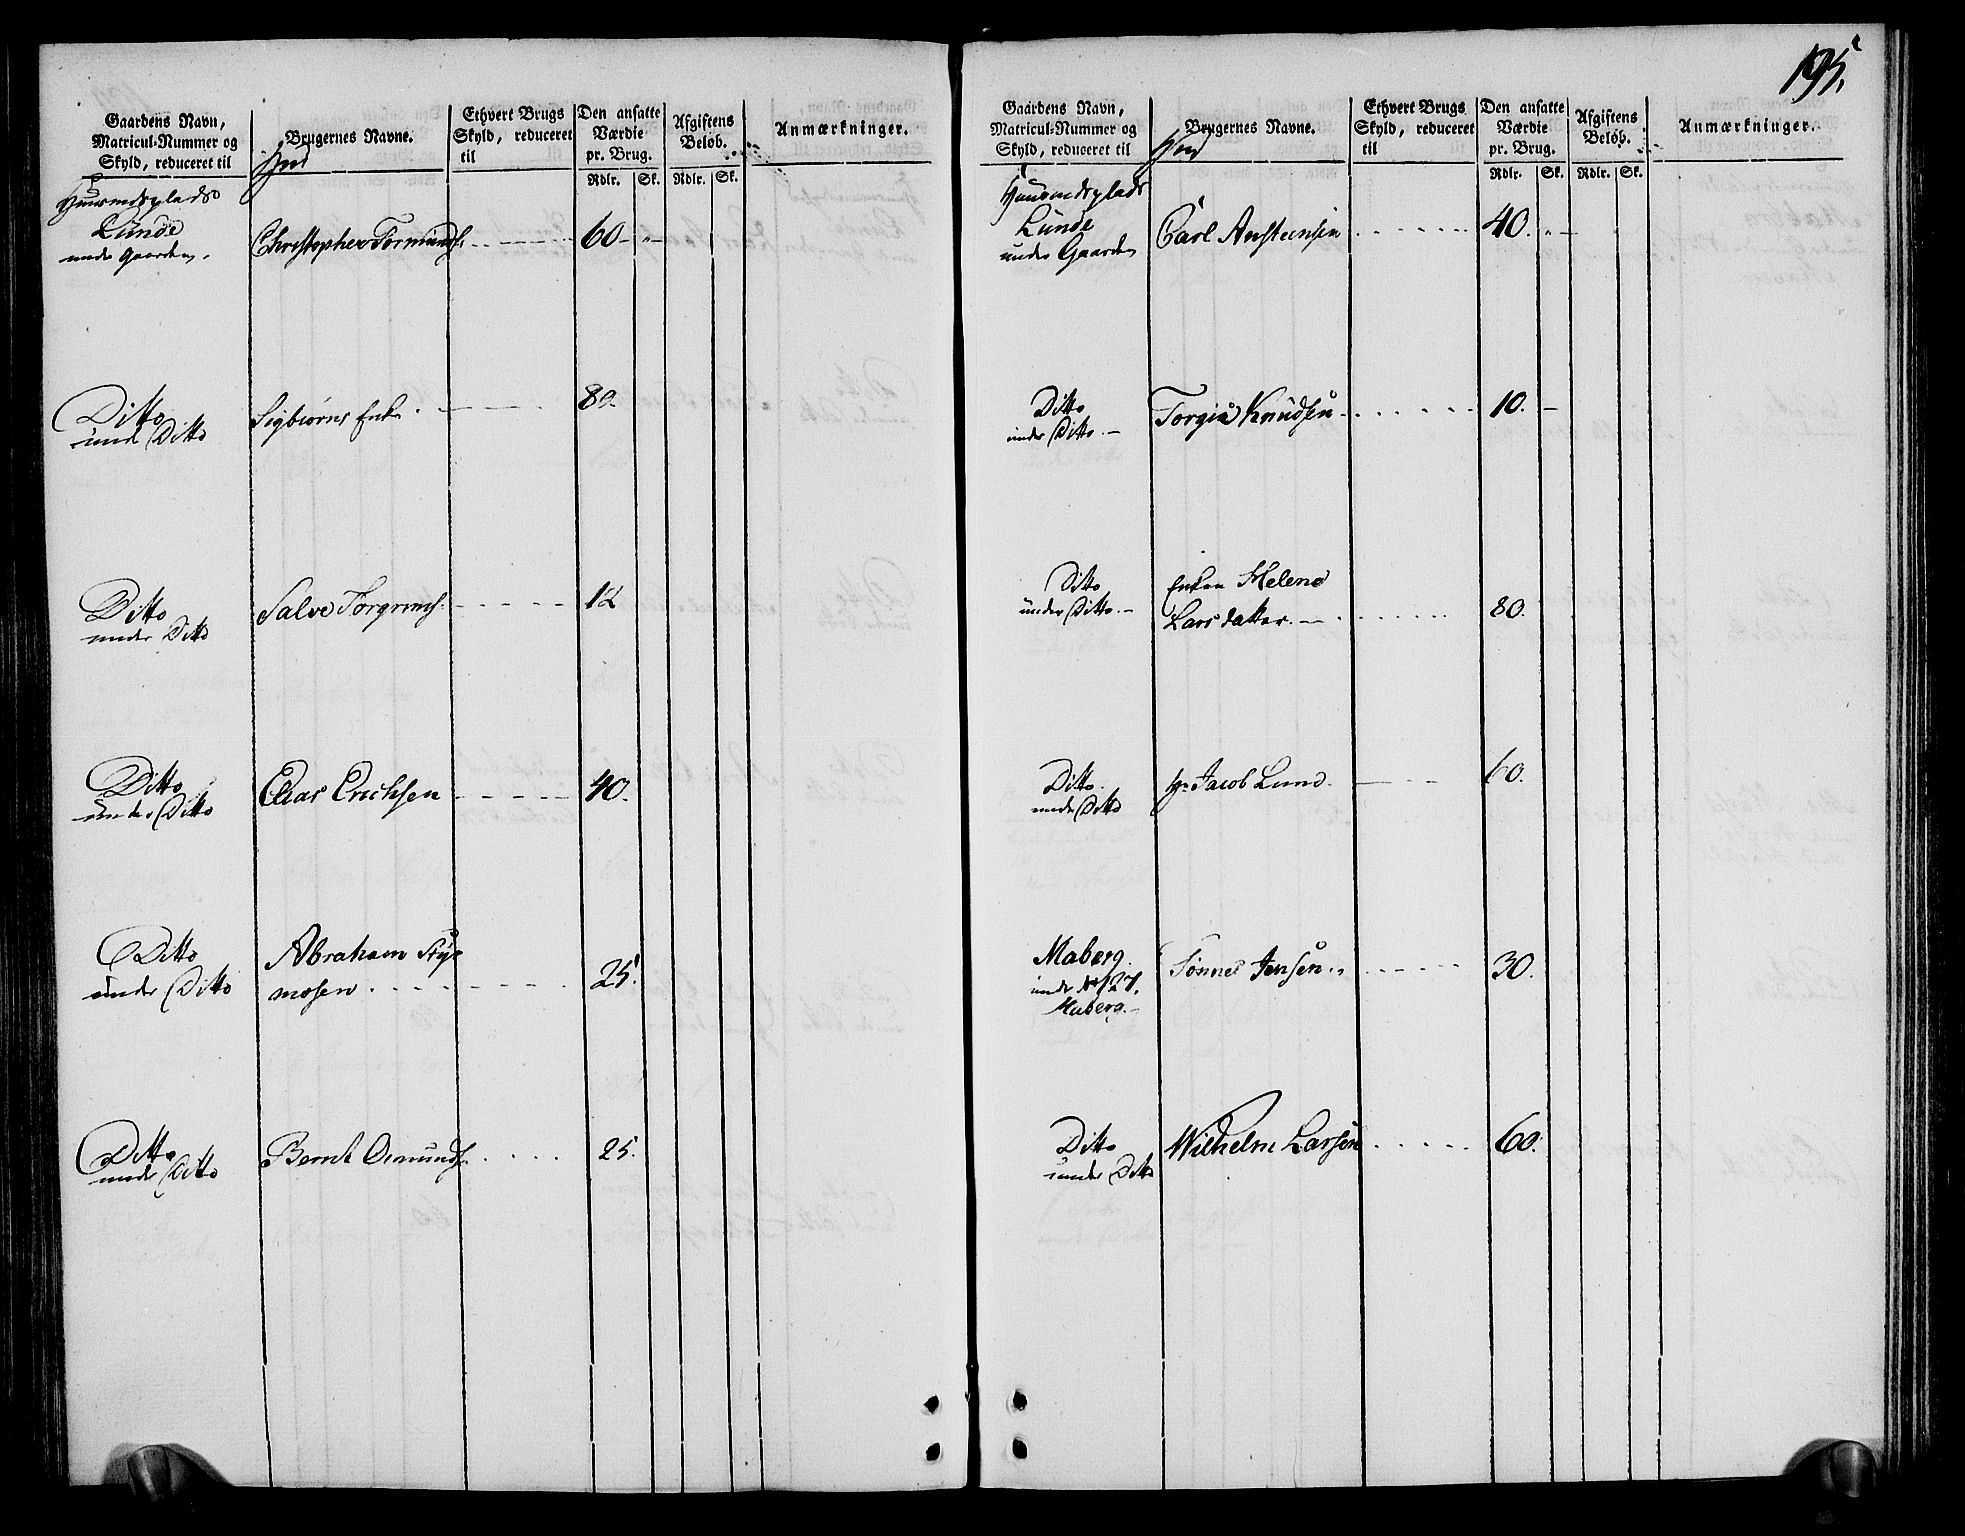 195.
Gaardens Navn,
Matricul-Nummer og
Skyld, reduceret til
Brugernes Navne.
Ethvert Brugs
Skyld, reduceret
til
Den ansatte
Værdie
pr. Brug.
Rdlr. Sk.
Afgiftens
Beløb.
Rdlr. Sk.
Anmærkninger.
Huusmdsplads
Lunde
under Gaarden
Christopher Tormunds. 60
Ditto
under Ditto
Sigbiørns Enke 80.
Ditto
under Ditto
Salve Torgrims. 12
Ditto
under Ditto
Elias Erichsen 40.
Ditto
under Ditto
Abraham
mosen 25.
Ditto
under Ditto
Bernt Omunds. 25.
Gaardens Navn,
Matricul-Nummer og
Skyld, reduceret til
Brugernes Navne.
Ethvert Brugs
Skyld, reduceret
til
Den ansatte
Værdie
pr. Brug.
Rdlr. Sk.
Afgiftens
Beløb.
Rdlr. Sk.
Anmærkninger.
Huusmdsplads
Lunde
under Gaarden
Carl Austeensen 40.
Ditto
under Ditto.
Torgiu Knudsen 10.
Ditto
under Ditto.
Enken Helene
Larsdatter. 80.
Ditto.
under Ditto
Hr Jacob Lund. 60.
Maberg.
under No 127.
Maberg.
Tønnes Jensen 30.
Ditto
under Ditto
Wilhelm Larsen 60.